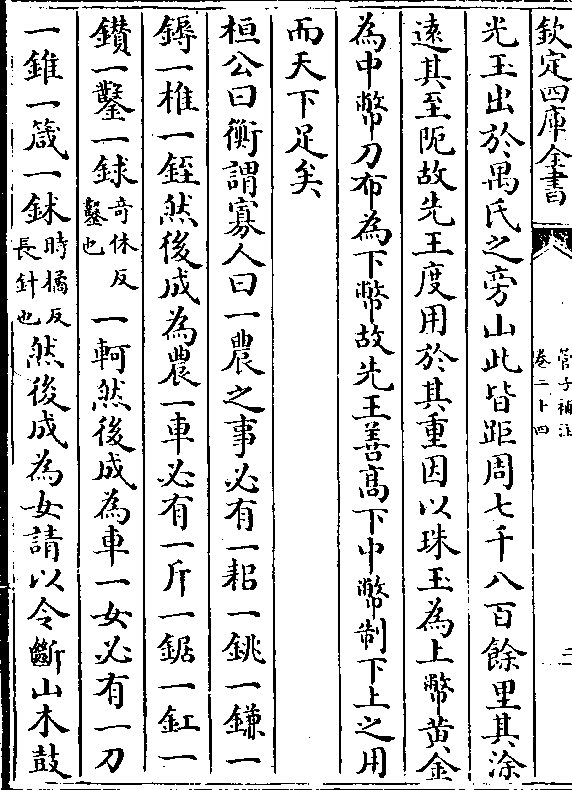 欽定四庫全書
管子補注
卷二十四
二
光玉出於禺氏之旁山此皆距周七千八百餘里其涂
遠其至阨故先王度用於其重因以珠玉為上幣黄金
為中幣刀布為下幣故先王善髙下中幣制下上之用
而天下足矣
桓公曰衡謂寡人曰一農之事必有一耜一銚一鎌一
鎒一椎一銍然後成為農一車必有一斤一鋸一釭一
鑽一鑿一銶奇休反鑿也一軻然後成為車一女必有一刀
一錐一箴一鉥時橘反長針也然後成為女請以令斷山木鼓